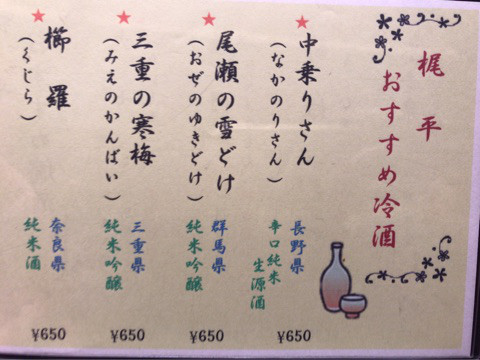 梶平
おすすめ冷酒
★
中乗りさん
(なかのりさん)
長野県
辛口純米
生源酒
¥650
★
尾瀬の雪どけ
(おぜのゆきどけ)
群馬県
純米吟醸
¥650
★
三重の寒梅
(みえのかんばい)
三重県
純米吟醸
¥650
★
櫛羅
(くじら)
奈良県
純米酒
¥650